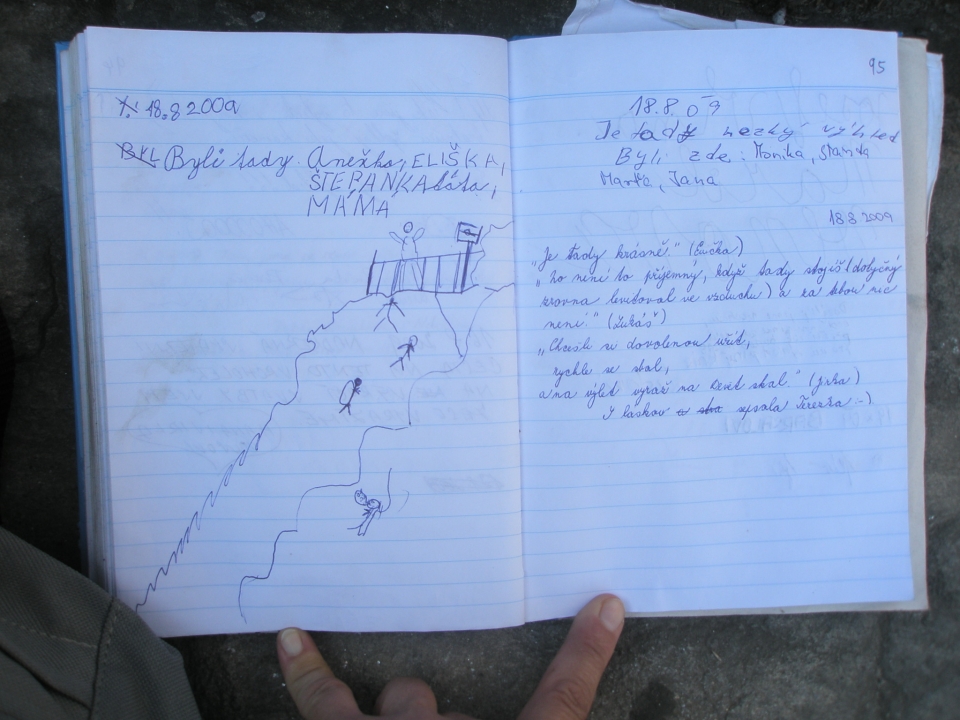 18.8 2009
Byli tady. Anežka, ELIŠKA,
ŠTĚPÁNKA táta,
MÁMA
95
18.8.09
Je tady hezký výhled
Byli zde: Monika, Standa
Jana
18 8 2009
"Je tady krásně." (Lučka)
"To není to příjemný, když tady stojíš (dotyčný
zrovna levitoval ve vzduchu) a za tebou nic
není." (Lukáš)
"Chceš-li si dovolenou užít,
rychle se sbal,
a na výlet vyraž na Devět skal." (Jirka)
S láskou sepsala Terezka :-)